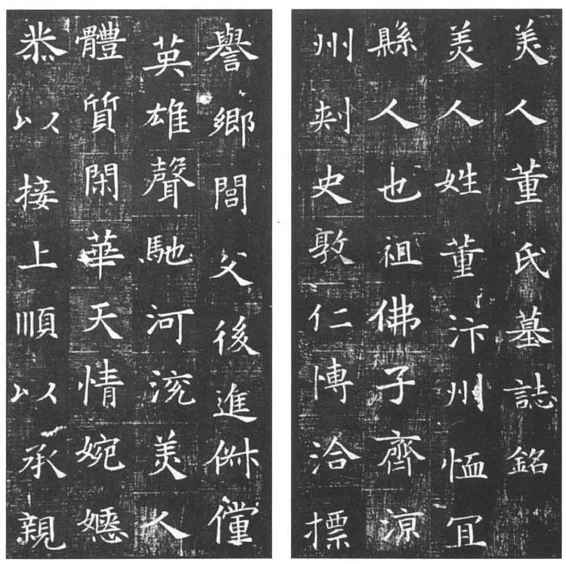 美人董氏墓誌銘
美人姓董汴州恤冝
縣人也祖佛子齊凉
州刾史敦仁愽洽摽
譽鄉閭父後進俶儻
英雄聲馳河渷美人
體質閑華天情婉嫕
恭以接上順以承親